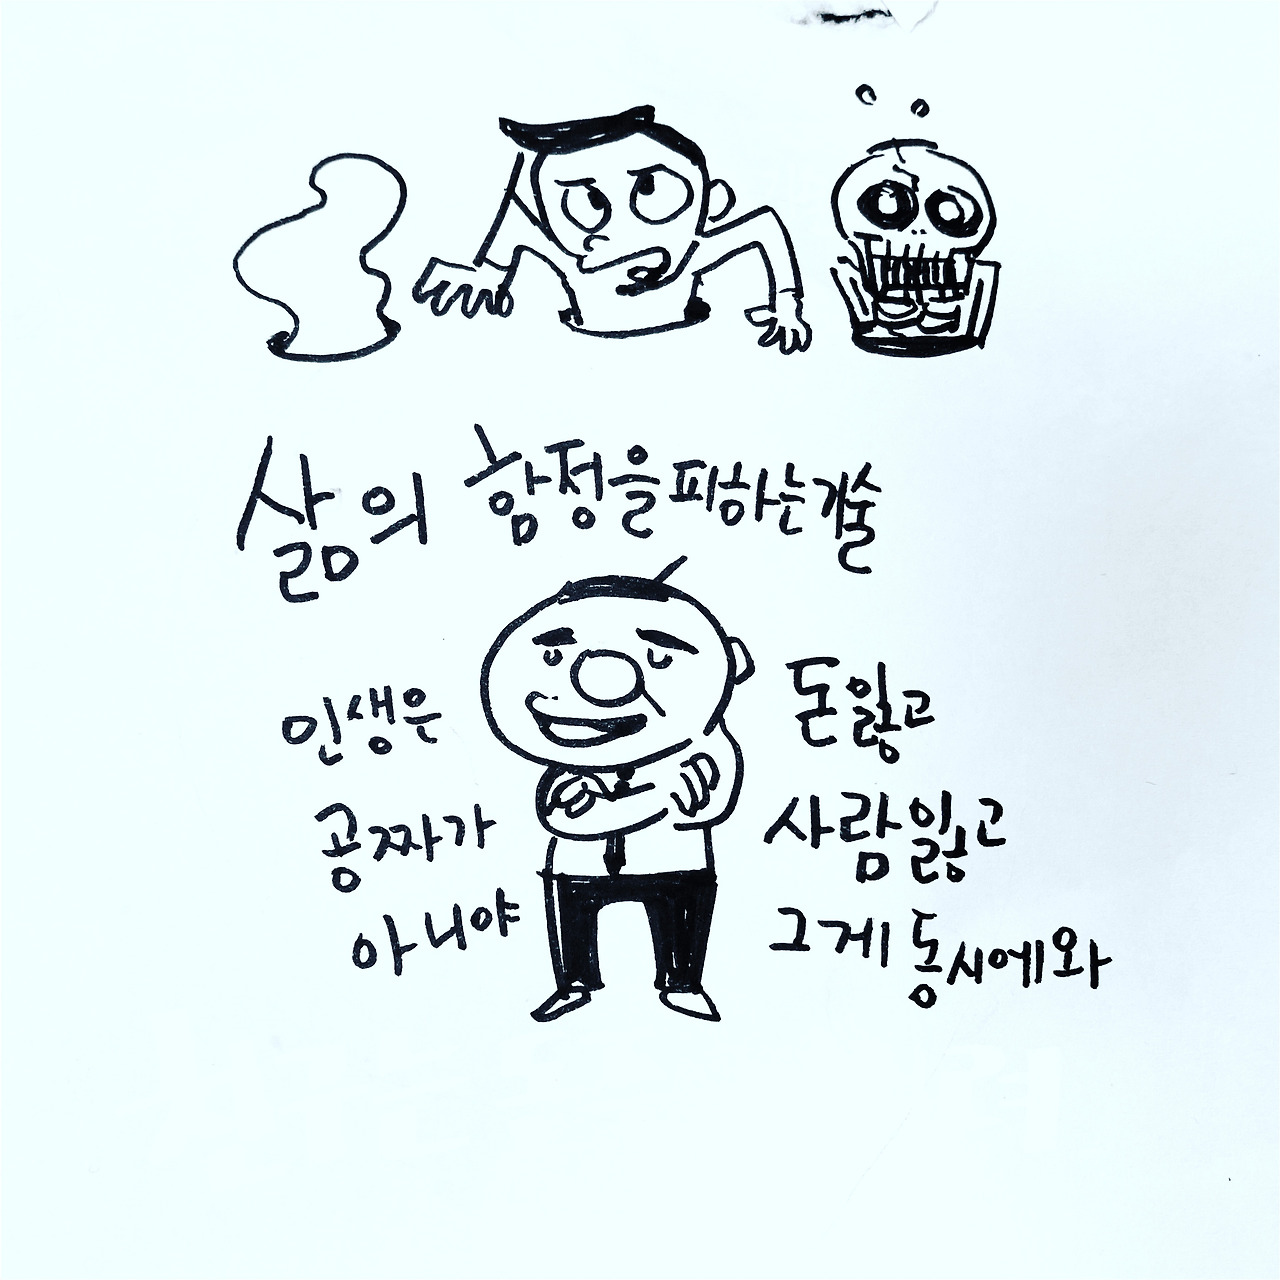 삶의 함정을 피하는 기술
인생은
공짜가
아니야
돈 잃고
사람 잃고
그게 동시에 와